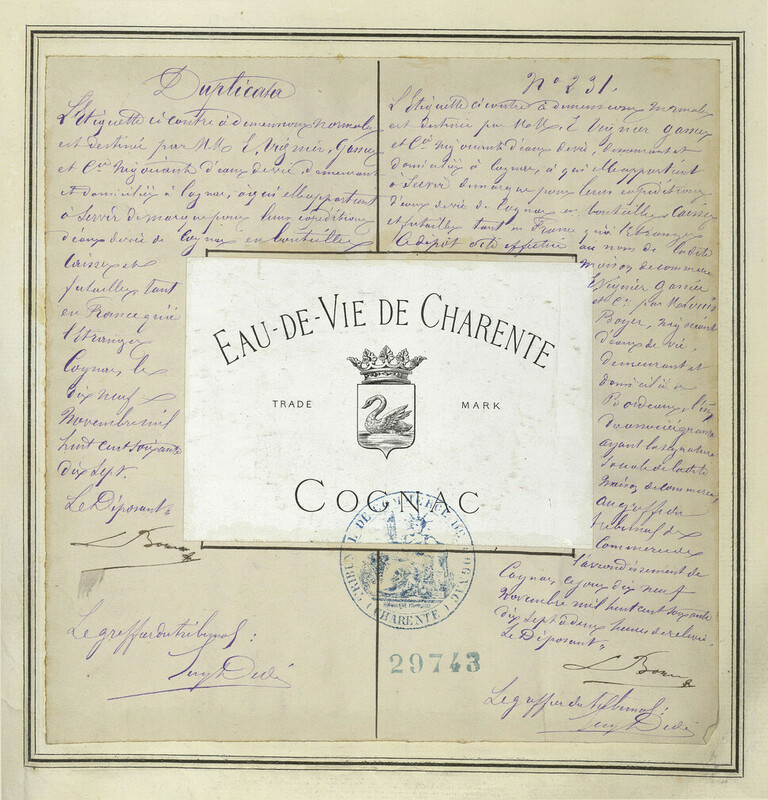 Duplicata
L'Etiquette ci contre à dimensions normales
est destinée par MM E. Vignier, Gassée
et Cie négociants d'eaux de vie, demeurant
et domiciliés à Cognac, à qui elle appartient
à Servir de marque pour leurs expéditions
d'eaux de vie de Cognac en bouteilles
Caisses et
futailles tant
en France qu'à
l'étranger
Cognac, le
dix neuf
Novembre mil
huit cent soixante
dix sept.
Le Déposant
L Boyer
Le greffier du tribunal:
No 231.
L'Etiquette ci contre à dimensions normales
est destinée par MM. E Vignier Gassée
et Cie Négociants d'eaux de vie, demeurant et
domiciliés à Cognac, à qui elle appartient
à Servir de marque pour leurs expéditions
d'eaux de vie de Cognac en bouteilles Caisses
et futailles tant en France qu'à l'étranger
Ce dépôt a été effectué au nom de la dite
maison de commerce
E Vignier Gassée
et Cie par M Louis
Boyer, négociant
d'eaux de vie,
demeurant et
domicilié à
Bordeaux, l'un
des associés gérants
ayant la signature
Sociale de la dite
maison de commerce
au greffe du
tribunal de
Commerce de
l'arrondissement de
Cognac ce jour dix neuf
Novembre mil huit cent soixante
dix sept à deux heures de relevée.
Le Déposant
L Boyer
Le greffier du tribunal:
EAU-DE-VIE DE CHARENTE
TRADE MARK
COGNAC
TRIBUNAL DE COMMERCE DE COGNAC (CHARENTE)
29743